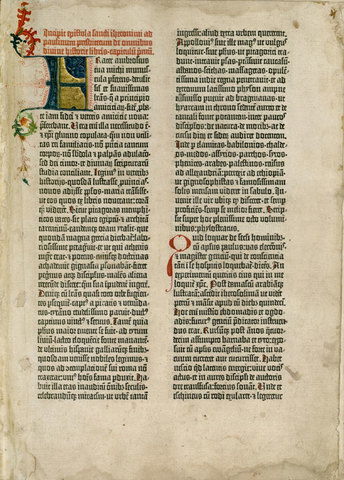 Incipit epistola sancti iheronimi ad
paulinum presbiterum de omnibus
divine historie libris·capitulū primū.
Frater ambrosius
tua michi munus-
cula pferens·detulit
sil et suavissimas
lras·q̄ a principio
amiciciaꝝ·fidē pba-
te iam fidei et veteris amicicie nova:
pferebant. Vera enī illa necessitudo ē·
et xpi glutino copulata·qm̄ non utili-
tas rei familiaris·nō pn̄tia tantum
corpoꝝ·nō sbdola et palpās adulatio·
sed dei timor·et divinaꝝ scripturarum
studia conciliant. Legim⁹ in veteribꝫ
historijs·quosdā lustrasse puīcias·
novos adijsse pplos·maria trāsisse·
ut eos quos ex libris noverant: corā
qꝫ viderēt. Sicut pitagoras memphi-
ticos vates·sic plato egiptū et architā
tarentinū·eandemqꝫ oram ytalie·que
quondam magna grecia dicebat̄: labo-
riosissime peragravit: et ut qui athenis
mgr̄ erat·et potens·cuiusqꝫ doctrinas
achademie gignasia psonabāt: fieret
peregrinus atqꝫ discipulus·malēs aliena
verecunde discere: qm̄ sua īpudent̄ ingerere.
Deniqꝫ cū lras quasi toto orbe fugien-
tes pseqit̄: capt⁹ a piratis et venunda-
tus·tyrāno crudelissimo paruit: duct⁹
captiuus vinct⁹ et seruus. Tamē quia
phus maior emēte se fuit·ad tytum
livium·lacteo eloquentie fonte manantē·
de ultimis hispanie galliarumqꝫ finibꝫ·
quosdam venisse nobiles legimus: et
quos ad contemplationē sui roma nō
traxerat: uni⁹ hoīs fama pduxit.
Habuit illa etas inauditū oībꝫ seculis·
celebrandūqꝫ miraculū: ut urbē tantam
ingressi: aliud extra urbem quererent.
Apolloni⁹ sive ille mag⁹ ut vulgus
loquitur·sive phūs·ut pitagorici tra-
dunt: intravit persas·ptransivit caucasū·
albanos·scithas·massagetas·opulē-
tissima indie regna penetravit: et ad
extremum latissimo physon amne
trāsmisso puenit ad bragmanas: ut
hyarcam in throno sedentē aureo et de
tantali fonte potantem·inter paucos
discipulos·de natura·de moribꝫ·ac de
cursu dieꝝ et sideꝝ audiret docentem.
Inde p elamitas·babilonios·chalde-
os·medos·assyrios·parthos·syros·
phenices·arabes·palestinos·reversus
ad alexandriā: perrexit ad ethiopiā·
ut gignosophistas et famosissimam
solis mensam videret in sabulo. Invenit
ille vir ubiqꝫ qd̄ disceret: et semp
proficiēs·semp se melior fieret. Scrip-
sit super hoc plenissime octo volumi-
nibus: phylostratus.
Quid loquar de secli hominibꝫ:
cū apostolus paulus·vas electionis·
et magister gentiū: qui de conscientia
tāti in se hospitis loquebat̄·dicēs. An
experimentū queritis eius qui in me
loquit̄ xps. Post damascū arabiāqꝫ
lustratā: ascēdit iherosolimā ut videret
petrū et māsit apud eū diebꝫ quindecī.
Hoc enī misterio ebdomadis et ogdo-
adis: futur⁹ gentiū pdicator instruen-
dus erat. Rursūqꝫ post ānos quatuor-
decim assumpto barnaba et tyto: expo-
suit cū aplis evāgeliū: ne forte in va-
cuum curreret aut cucurrisset. Habet
nescio qd̄ latentis energie: vive vocis
act⁹: et in aures discipli de auctoris
ore transfusa: forti⁹ sonat. Unde et
eschineus cū rodi exularet·et legeretur